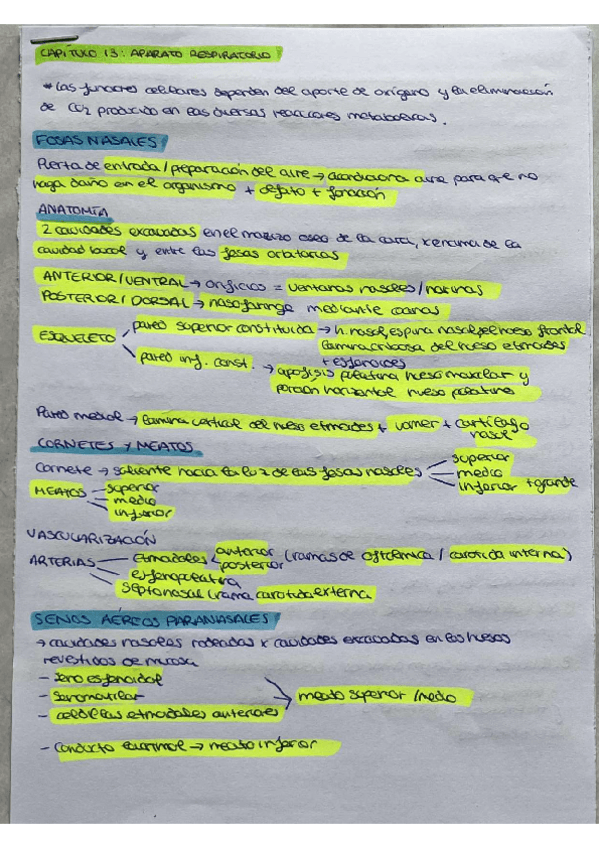 CAPÍTULO 13: APARATO RESPIRATORIO
* Las funciones celulares dependen del aporte de oxígeno y la eliminación
de CO2 producido en las diversas reacciones metabólicas.
FOSAS NASALES
Puerta de entrada / preparación del aire → acondiciona aire para que no
haga daño en el organismo + olfato + fonación
ANATOMÍA
2 cavidades excavadas en el macizo óseo de la cara, x encima de la
cavidad bucal y entre las fosas orbitarias
ANTERIOR / VENTRAL → orificios = ventanas nasales / narinas
POSTERIOR / DORSAL → nasofaringe mediante coanas
ESQUELETO pared superior constituida → h. nasal, espina nasal del hueso frontal
lámina cribosa del hueso etmoides
+ esfenoides
pared inf. const. → apófisis palatina hueso maxilar y
porción horizontal hueso palatino
Pared medial → lámina vertical del hueso etmoides + vomer + cartílago
nasal
CORNETES Y MEATOS
Cornete → saliente hacia la luz de las fosas nasales superior
medio
inferior + grande
MEATOS superior
medio
inferior
VASCULARIZACIÓN
ARTERIAS etmoidales anterior
posterior (ramas de oftálmica / carotida interna)
esfenopalatina
septonasal (rama carotida externa
SENOS AÉREOS PARANASALES
→ cavidades nasales rodeadas x cavidades excavadas en los huesos
revestidos de mucosa
- seno esfenoidal
- seno maxilar
- celdillas etmoidales anteriores
meato superior / medio
- conducto lacrimal → meato inferior